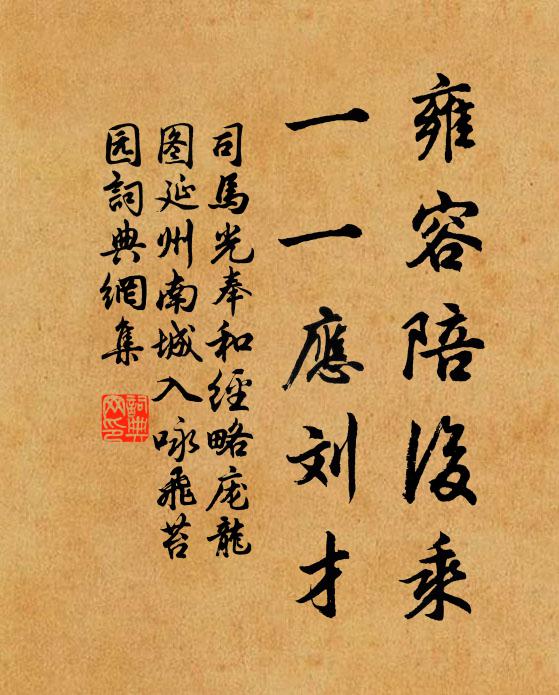 雍容陪後乘
一一應刘才
司馬光奉和經略庞龍
图延州南城入咏飛苔
园詞典網集
詞典
网印